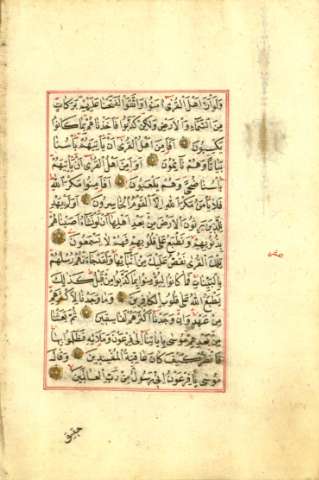 وَلَوْ أَنَّ أَهْلَ الْقُرَى آمَنُوا وَاتَّقَوْا لَفَتَحْنَا عَلَيْهِمْ بَرَكَاتٍ
مِنَ السَّمَاءِ وَالْأَرْضِ وَلَكِنْ كَذَّبُوا فَأَخَذْنَاهُمْ بِمَا كَانُوا
يَكْسِبُونَ أَفَأَمِنَ أَهْلُ الْقُرَى أَنْ يَأْتِيَهُمْ بَأْسُنَا
بَيَاتًا وَهُمْ نَائِمُونَ أَوَأَمِنَ أَهْلُ الْقُرَى أَنْ يَأْتِيَهُمْ
بَأْسُنَا ضُحًى وَهُمْ يَلْعَبُونَ أَفَأَمِنُوا مَكْرَ اللَّهِ
فَلَا يَأْمَنُ مَكْرَ اللَّهِ إِلَّا الْقَوْمُ الْخَاسِرُونَ أَوَلَمْ يَهْدِ
لِلَّذِينَ يَرِثُونَ الْأَرْضَ مِنْ بَعْدِ أَهْلِهَا أَنْ لَوْ نَشَاءُ أَصَبْنَاهُمْ
بِذُنُوبِهِمْ وَنَطْبَعُ عَلَى قُلُوبِهِمْ فَهُمْ لَا يَسْمَعُونَ
تِلْكَ الْقُرَى نَقُصُّ عَلَيْكَ مِنْ أَنْبَائِهَا وَلَقَدْ جَاءَتْهُمْ رُسُلُهُمْ
بِالْبَيِّنَاتِ فَمَا كَانُوا لِيُؤْمِنُوا بِمَا كَذَّبُوا مِنْ قَبْلُ كَذَلِكَ
يَطْبَعُ اللَّهُ عَلَى قُلُوبِ الْكَافِرِينَ وَمَا وَجَدْنَا لِأَكْثَرِهِمْ
مِنْ عَهْدٍ وَإِنْ وَجَدْنَا أَكْثَرَهُمْ لَفَاسِقِينَ ثُمَّ بَعَثْنَا
مِنْ بَعْدِهِمْ مُوسَى بِآيَاتِنَا إِلَى فِرْعَوْنَ وَمَلَئِهِ فَظَلَمُوا بِهَا
فَانْظُرْ كَيْفَ كَانَ عَاقِبَةُ الْمُفْسِدِينَ وَقَالَ
مُوسَى يَا فِرْعَوْنُ إِنِّي رَسُولٌ مِنْ رَبِّ الْعَالَمِينَ
حقيق